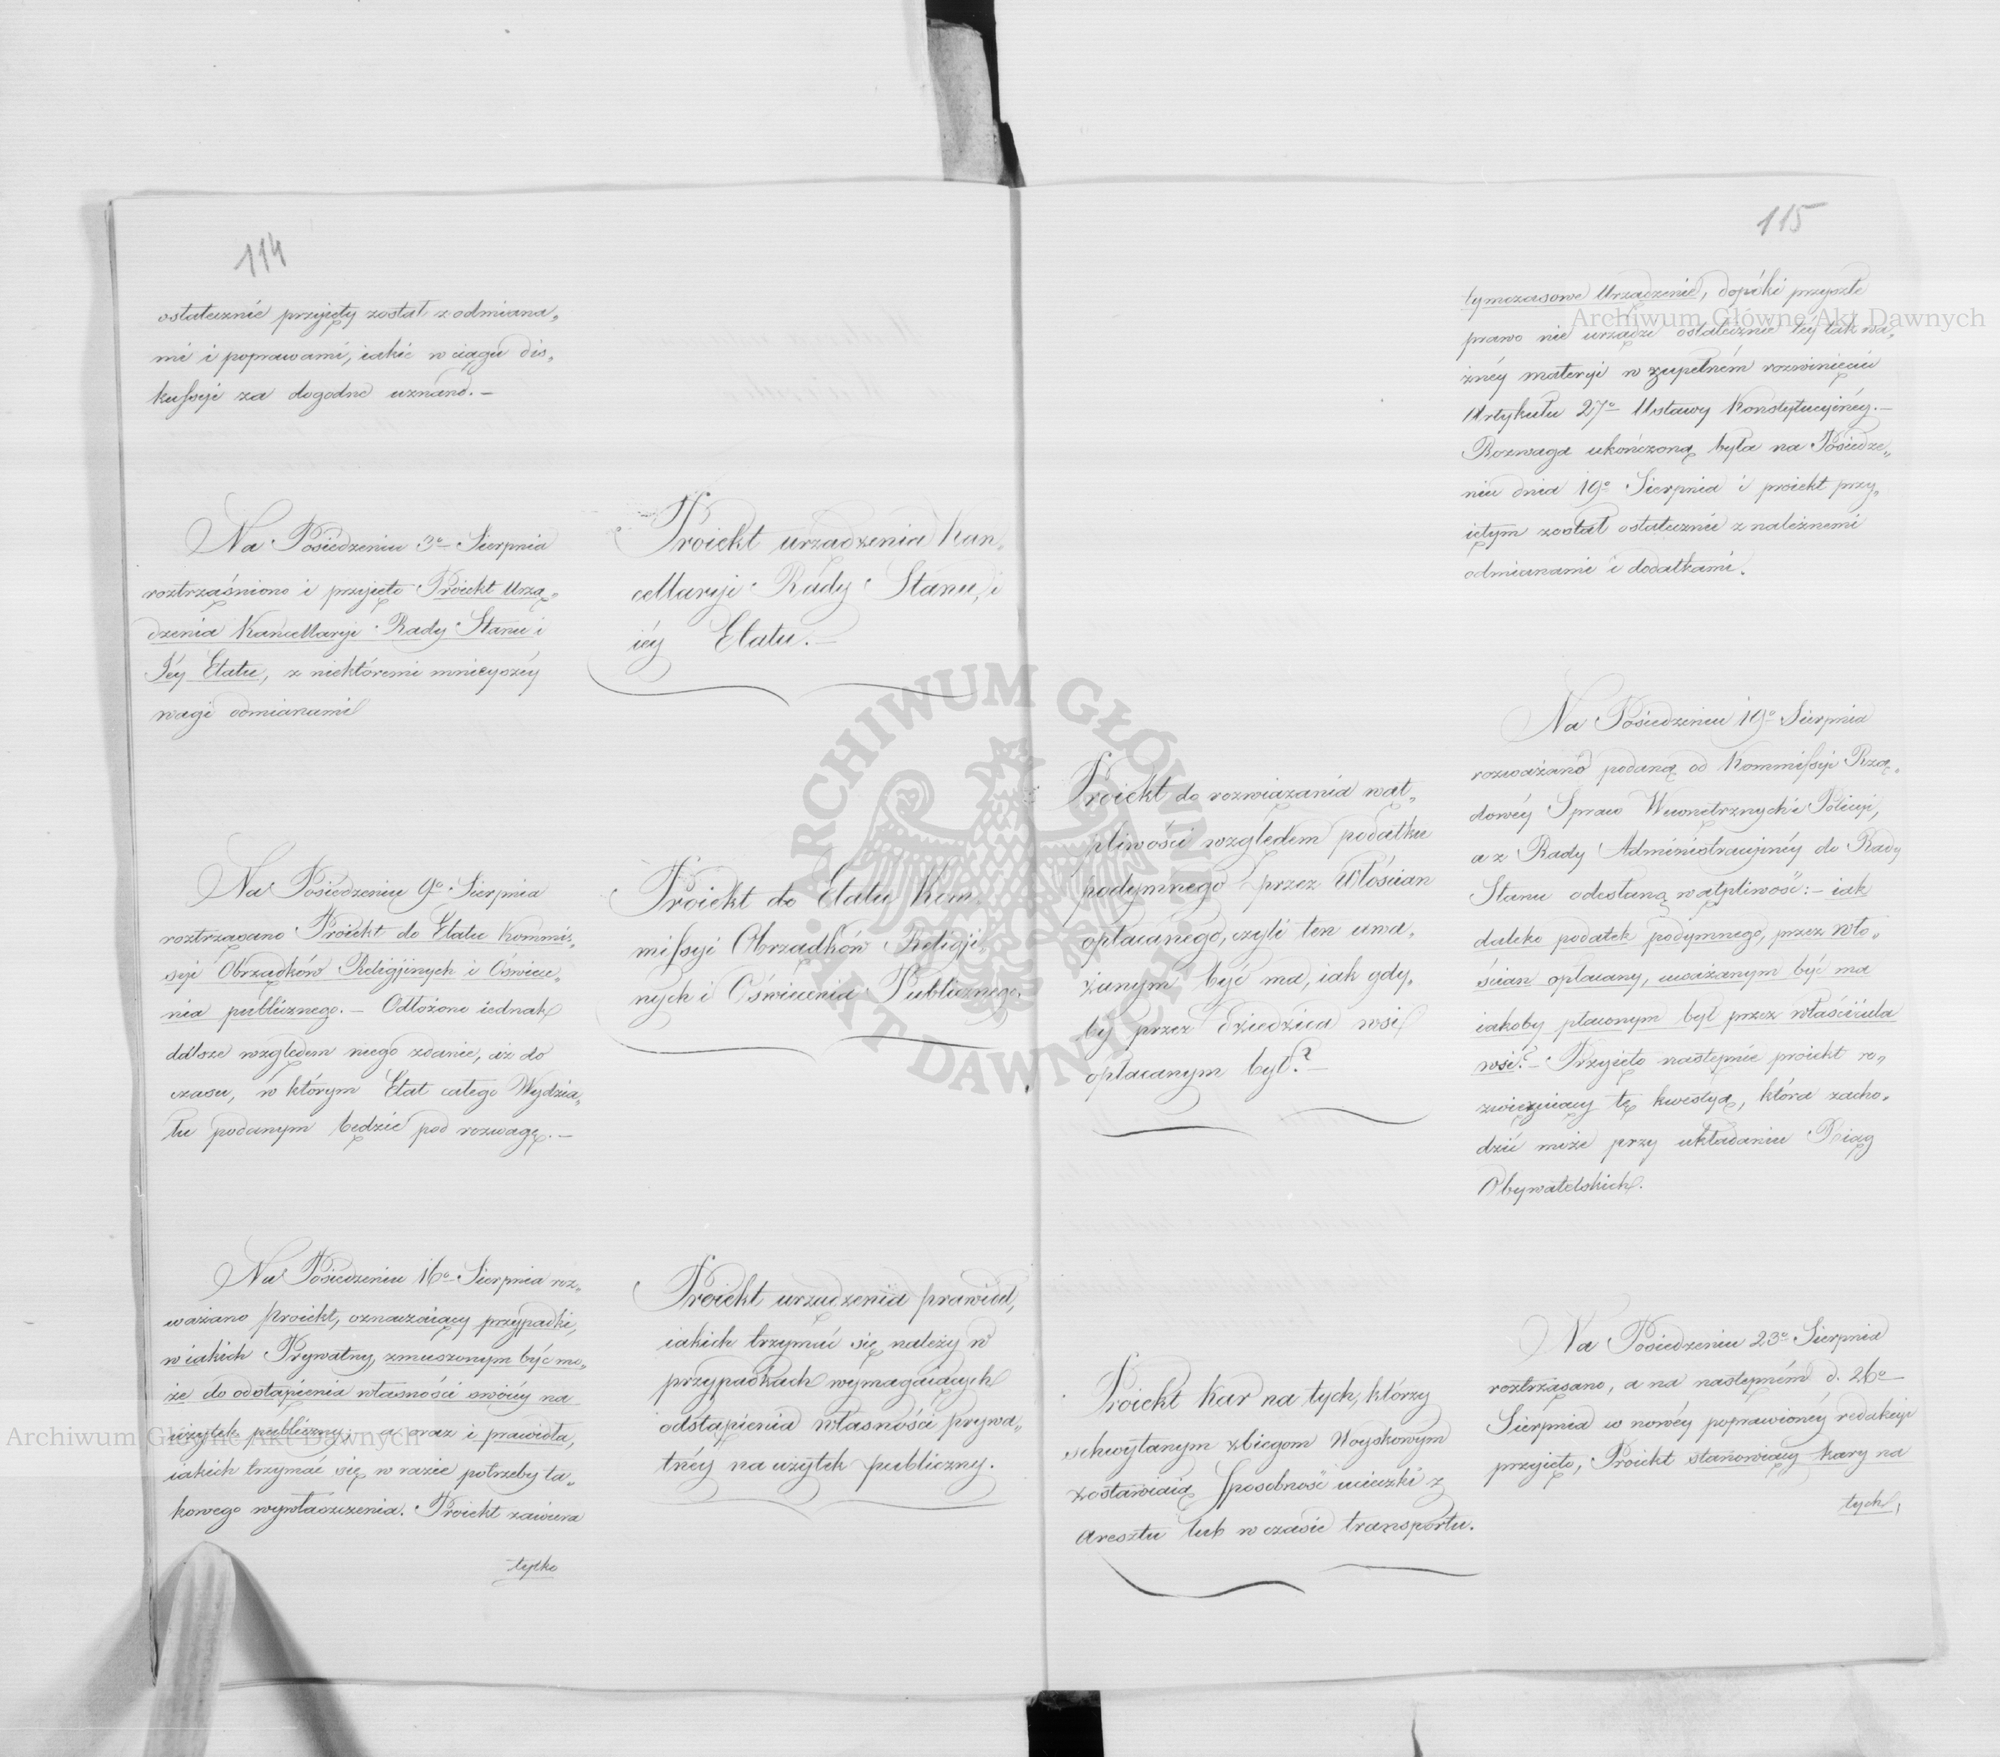 114
ostatecznie przyięty został z odmiana„
mi i poprawami, iakie w ciągu dis„
kussyi za dogodne uznano.—
Na Posiedzeniu 3º Sierpnia
roztrząśniono i przyięto Proiekt Urzą„
dzenia Kancellaryi Rady Stanu i
Iéy Etatu, z niektóremi mnieyszéy
wagi odmianami
Proiekt urządzenia Kan„
cellaryi Rady Stanu, i
iéy Etatu.—
Na Posiedzeniu 9º Sierpnia
roztrząsano Proiekt do Etatu Kommis„
syi Obrządków Religijnych i Oświece„
nia publicznego.— Odłożono iednak
dalsze względem niego zdanie, aż do
czasu, w którym Etat całego Wydzia„
łu podanym będzie pod rozwagę.—
Proiekt do Etatu Kom„
missyi Obrządków Religij„
nych i Oświecenia Publicznego.
Na Posiedzeniu 16º Sierpnia roz„
ważano Proiekt, oznaczaiący przypadki,
w iakich Prywatny, zmuszonym być mo„
że do odstąpienia własności swoiéy na
użytek publiczny, a oraz i prawidła,
iakich trzymać się w razie potrzeby ta„
kowego wywłaszczenia. Proiekt zawiera
tylko
Proiekt urządzenia prawideł,
iakich trzymać się należy w
przypadkach wymagaiących
odstąpienia własności prywa„
tnéy na użytek publiczny.
115
tymczasowe Urządzenie, dopóki przyszłe
prawo nie urządzi ostatecznie téy tak wa„
żnéy materyi w zupełném rozwinięciu
Artykułu 27º Ustawy Konstytucyinéy.—
Rozwaga ukończoną była na Posiedze„
niu dnia 19º Sierpnia i proiekt przy„
iętym został ostatecznie z należnemi
odmianami i dodatkami.
Proiekt do rozwiązania wąt„
pliwości względem podatku
podymnego przez Włościan
opłacanego, czyli ten uwa„
żanym być ma, iak gdy„
by przez dziedzica wsi
opłacanym był?—
Na Posiedzeniu 19º Sierpnia
rozważano podaną od Kommissyi Rzą„
dowéy Spraw Wewnętrznych i Policyi,
a z Rady Administracyinéy do Rady
Stanu odesłaną wątpliwość:— iak
daleko podatek podymnego, przez Wło„
ścian opłacany, uważanym być ma
iakoby płaconym był przez właściciela
wsi?— Przyięto następnie proiekt ro„
zwięzuiący tę kwestyą, która zacho„
dzić może przy układaniu Xiąg
Obywatelskich.
Proiekt kar na tych, którzy
schwytanym zbiegom Woyskowym
zostawiaią sposobność ucieczki z
aresztu lub w czasie transportu.
Na Posiedzeniu 23º Sierpnia
roztrząsano, a na następném d. 26º
Sierpnia w nowéy poprawionéy redakcyi
przyięto, Proiekt stanowiący kary na
tych,
Archiwum Główne Akt Dawnych
Archiwum Główne Akt Dawnych
ARCHIWUM GŁÓWNE AKT DAWNYCH